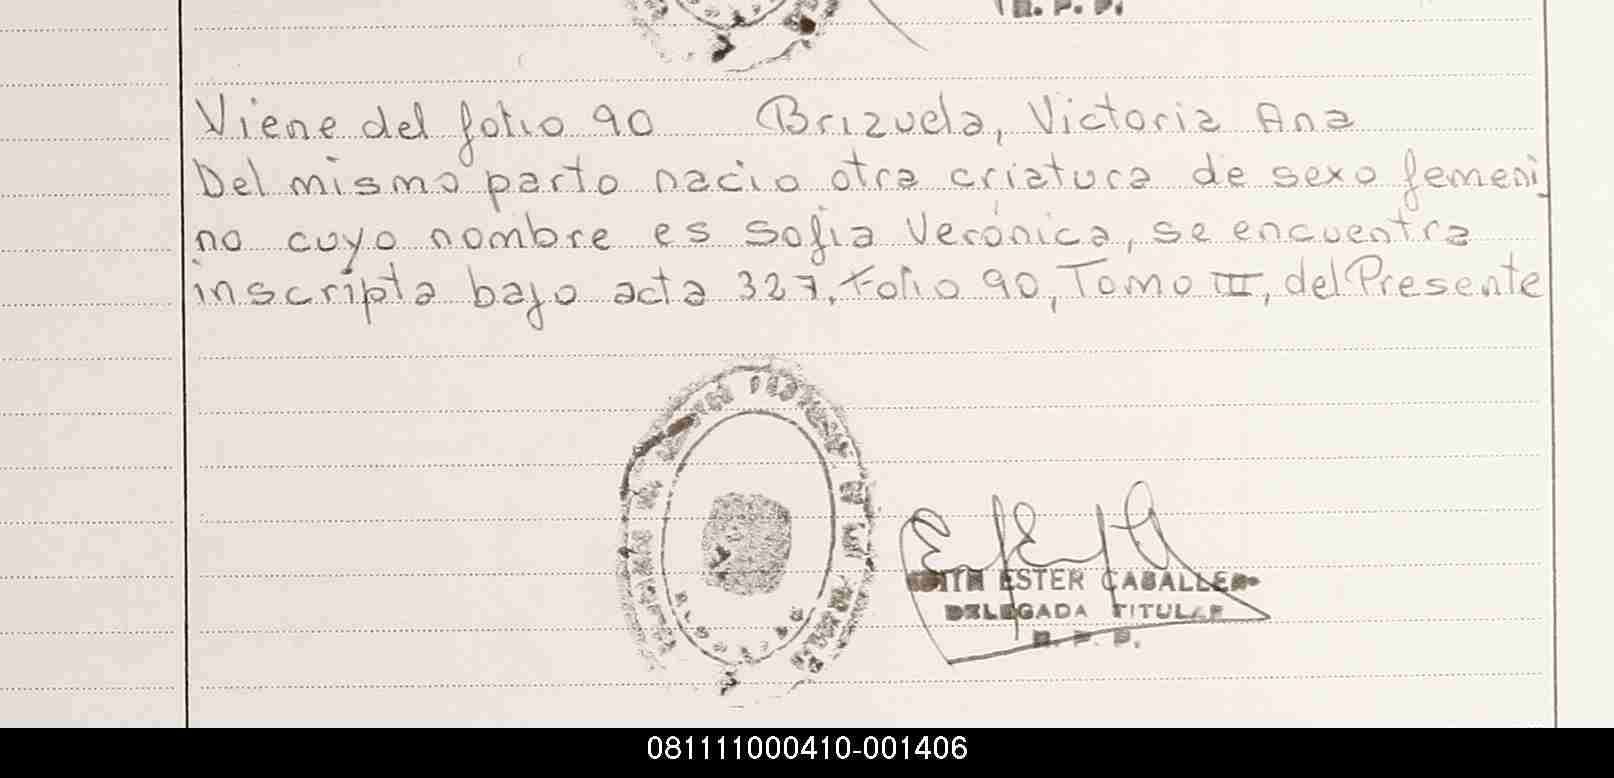 R. P. P.
Viene del folio 90 Brizuela, Victoria Ana
Del mismo parto nacio otra criatura de sexo femeni
no cuyo nombre es Sofia Verónica, se encuentra
inscripta bajo acta 327, Folio 90, Tomo III, del Presente
ESTER CABALLERO
DELEGADA TITULAR
R. P. P.
081111000410-001406